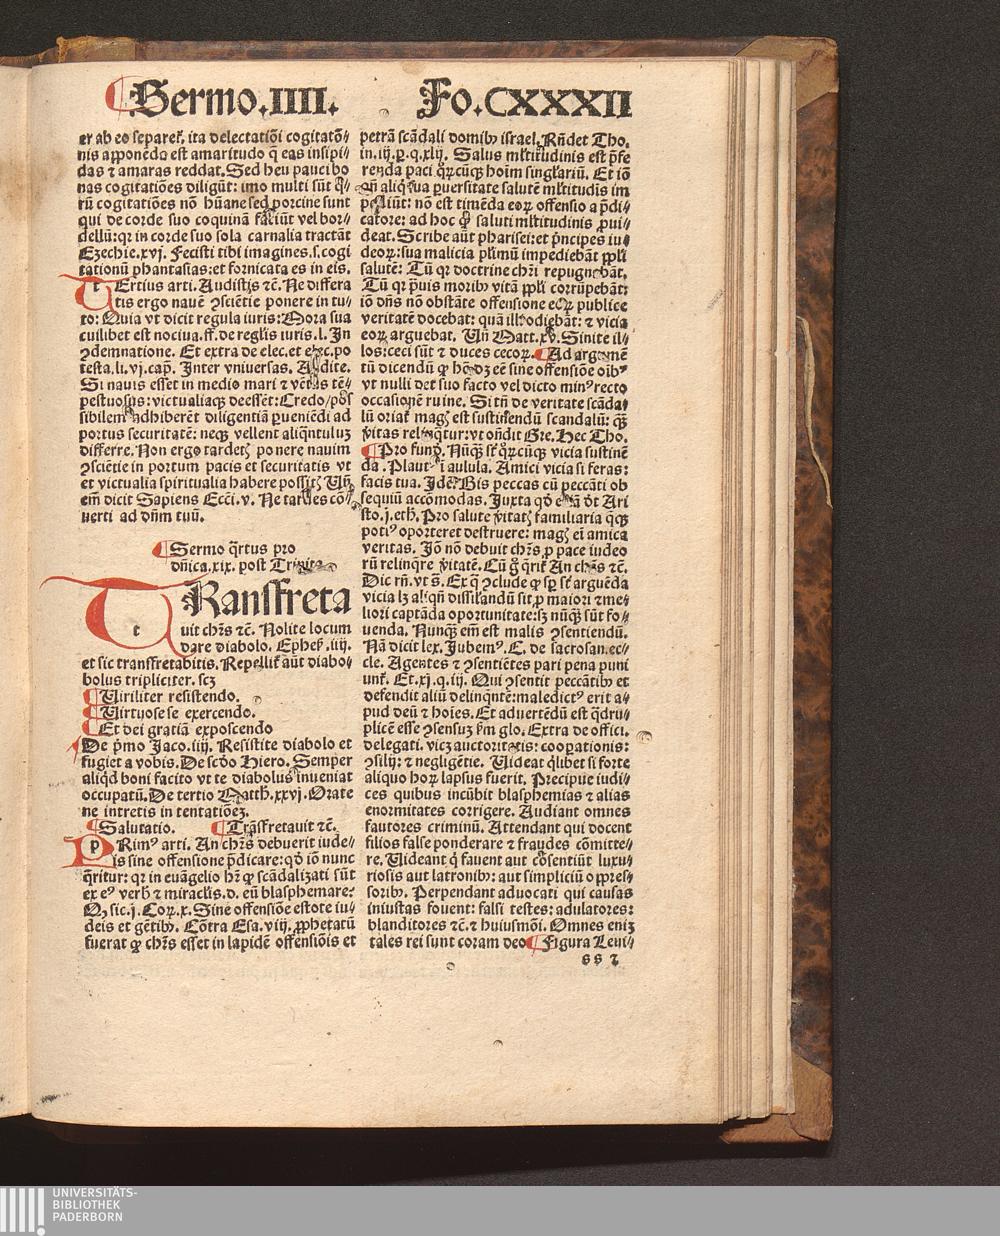 Sermo.IIII. Fo.CXXXII
er ab eo separet̃, ita delectatiõi cogitatõ-
nis apponẽdo est amaritudo q̃ eas insipi-
das ⁊ amaras reddat. Sed heu pauci bo
nas cogitatiões diligũt: imo multi sũt
rũ cogitatiões nõ hũane sed porcine sunt
qui de corde suo coquinã faciũt vel bor-
dellũ: qꝛ in corde suo sola carnalia tractãt
Ezechie.xvj. Fecisti tibi imagines.s.cogi
tationũ phantasias: et fornicata es in eis.
Tertius arti. Audistis ⁊c̃. Ne differa
tis ergo nauẽ ꝯsciẽtie ponere in tu-
to: Quia vt dicit regula iuris: Mora sua
cuilibet est nociua.ff.de regłis iuris.l. In
ꝯdemnatione. Et extra de elec.et elec.po
testa.li.vj.cap̃. Inter vniuersas. Audite.
Si nauis esset in medio mari ⁊ ventus tẽ-
pestuosus: victualiaqꝫ deessẽt: Credo/pos
sibilem adhiberẽt diligentiã ꝑueniẽdi ad
portus securitatẽ: neqꝫ vellent aliq̃ntuluꝫ
differre. Non ergo tardetꝭ ponere nauim
ꝯsciẽtie in portum pacis et securitatis vt
et victualia spiritualia habere possitꝭ Vñ
em̃ dicit Sapiens Ecci.v. Ne tardes cõ-
uerti ad dñm tuũ.
Sermo q̃rtus pro
dñica.xix. post Trinita
TRansfreta
uit chꝛ̃s ⁊c̃. Nolite locum
dare diabolo. Epheẽ.iiij.
et sic transfretabitis. Repellit̃ aũt diabo-
bolus tripliciter.scꝫ
Uiriliter resistendo.
Uirtuose se exercendo.
Et dei gratiã exposcendo
De p̃mo Jaco.iiij. Resistite diabolo et
fugiet a vobis. De scõo Hiero. Semper
aliqd boni facito vt te diabolus inueniat
occupatũ. De tertio Matth.xxvj. Orate
ne intretis in tentatiõeꝫ.
Salutatio. Trãsfretauit ⁊c̃.
PRimꝰ arti. An chꝛ̃s debuerit iude-
is sine offensione p̃dicare: qð iõ nunc
q̃ritur: qꝛ in euãgelio hꝛ̃ ꝙ scãdalizati sũt
ex eꝰ verb̃ ⁊ miracłis.d. eũ blasphemare:
Qꝫ sic.j. Coꝝ.x. Sine offensiõe estote iu-
deis et gẽtibꝫ. Cõtra Esa.viij. ꝓphetatũ
fuerat ꝙ chꝛ̃s esset in lapidẽ offensiõis et
petrã scãdali domibꝫ israel. Rñdet Tho.
in.iij.ꝑ.q.xlij. Salus mltitudinis est p̃fe
renda paci qꝛũcũqꝫ hoim singlariũ. Et iõ
qñ aliq̃ sua ꝑuersitate salutẽ mltitudis im
pediũt: nõ est timẽda eoꝝ offensio a p̃di-
catore: ad hoc ꝙ saluti mltitudinis ꝓui-
deat. Scribe aũt pharisei: et p̃ncipes iu-
deoꝝ: sua malicia plĩmũ impediebãt ppłi
salutẽ: Tũ qꝛ doctrine chꝛ̃i repugnabãt,
Tũ qꝛ p̃uis moribꝫ vitã ppłi corrũpebãt:
iõ dñs nõ obstãte offensione eoꝝ publice
veritatẽ docebat: quã illi odiebãt: ⁊ vicia
eoꝝ arguebat. Vñ Matt.xv. Sinite il-
los: ceci sũt ⁊ duces cecoꝝ. Ad argumẽ
tũ dicendũ ꝙ hõ dꝫ eẽ sine offensiõe oibꝰ
vt nulli det suo facto vel dicto minꝰ recto
occasionẽ ruine. Si tñ de veritate scãda-
lũ oriat̃ magꝭ est sustinendũ scandalũ: qꝫ
v̾itas relinq̃tur: vt oñdit Gre. Hec Tho.
Pro fund. Nũqꝫ sꝛ̃ qꝛũcũqꝫ vicia sustinẽ
da. Plaut i aulula. Amici vicia si feras:
facis tua. Idẽ Bis peccas cũ peccãti ob
sequiũ accõmodas. Juxta qð etiã ðt Ari
sto.j.eth. Pro salute v̾itatꝭ familiaria q̃qꝫ
potiꝰ oporteret destruere: magꝭ ei amica
veritas. Jõ nõ debuit chꝛ̃s ꝓ pace iudeo
rũ relinq̃re v̾itatẽ. Cũ g̊ q̃rit̃ An chꝛ̃s ⁊c̃.
Dic rñ. vt s̃. Ex q̊ ꝯclude ꝙ sꝑ sꝛ̃ arguẽda
vicia lꝫ aliqñ dissilandũ sit ꝓ maiori ⁊ me-
liori captãda oportunitate: sꝫ nũqꝫ sũt fo-
uenda. Nunqꝫ em̃ est malis ꝯsentiendũ.
Nã dicit lex. Jubemꝰ. C. de sacrosan.ec-
cle. Agentes ⁊ ꝯsentiẽtes pari pena puni
unt̃. Et.xj.q.iij. Qui ꝯsentit peccãtibꝫ et
defendit aliũ delinq̃ntẽ: maledictꝰ erit a-
pud deũ ⁊ hoĩes. Et aduertẽdũ est q̃dru-
plicẽ esse ꝯsensuꝫ p̃m glo. Extra de offici.
delegati. vicꝫ auctoritatis: cooꝑationis:
ꝯsilij: ⁊ negligẽtie. Uideat q̃libet si forte
aliquo hoꝝ lapsus fuerit. Precipue iudi-
ces quibus incũbit blasphemias ⁊ alias
enormitates corrigere. Audiant omnes
fautores criminũ. Attendant qui docent
filios false ponderare ⁊ fraudes cõmitte-
re. Uideant q̃ fauent aut cõsentiũt luxu-
riosis aut latronibꝫ: aut simpliciũ oppres-
soribꝫ. Perpendant aduocati qui causas
iniustas fouent: falsi testes: adulatores:
blanditores ⁊c̃. ⁊ huiusmõi. Omnes eniꝫ
tales rei sunt coram deo Figura Leui-
ss 2
UNIVERSITÄTS-
BIBLIOTHEK
PADERBORN